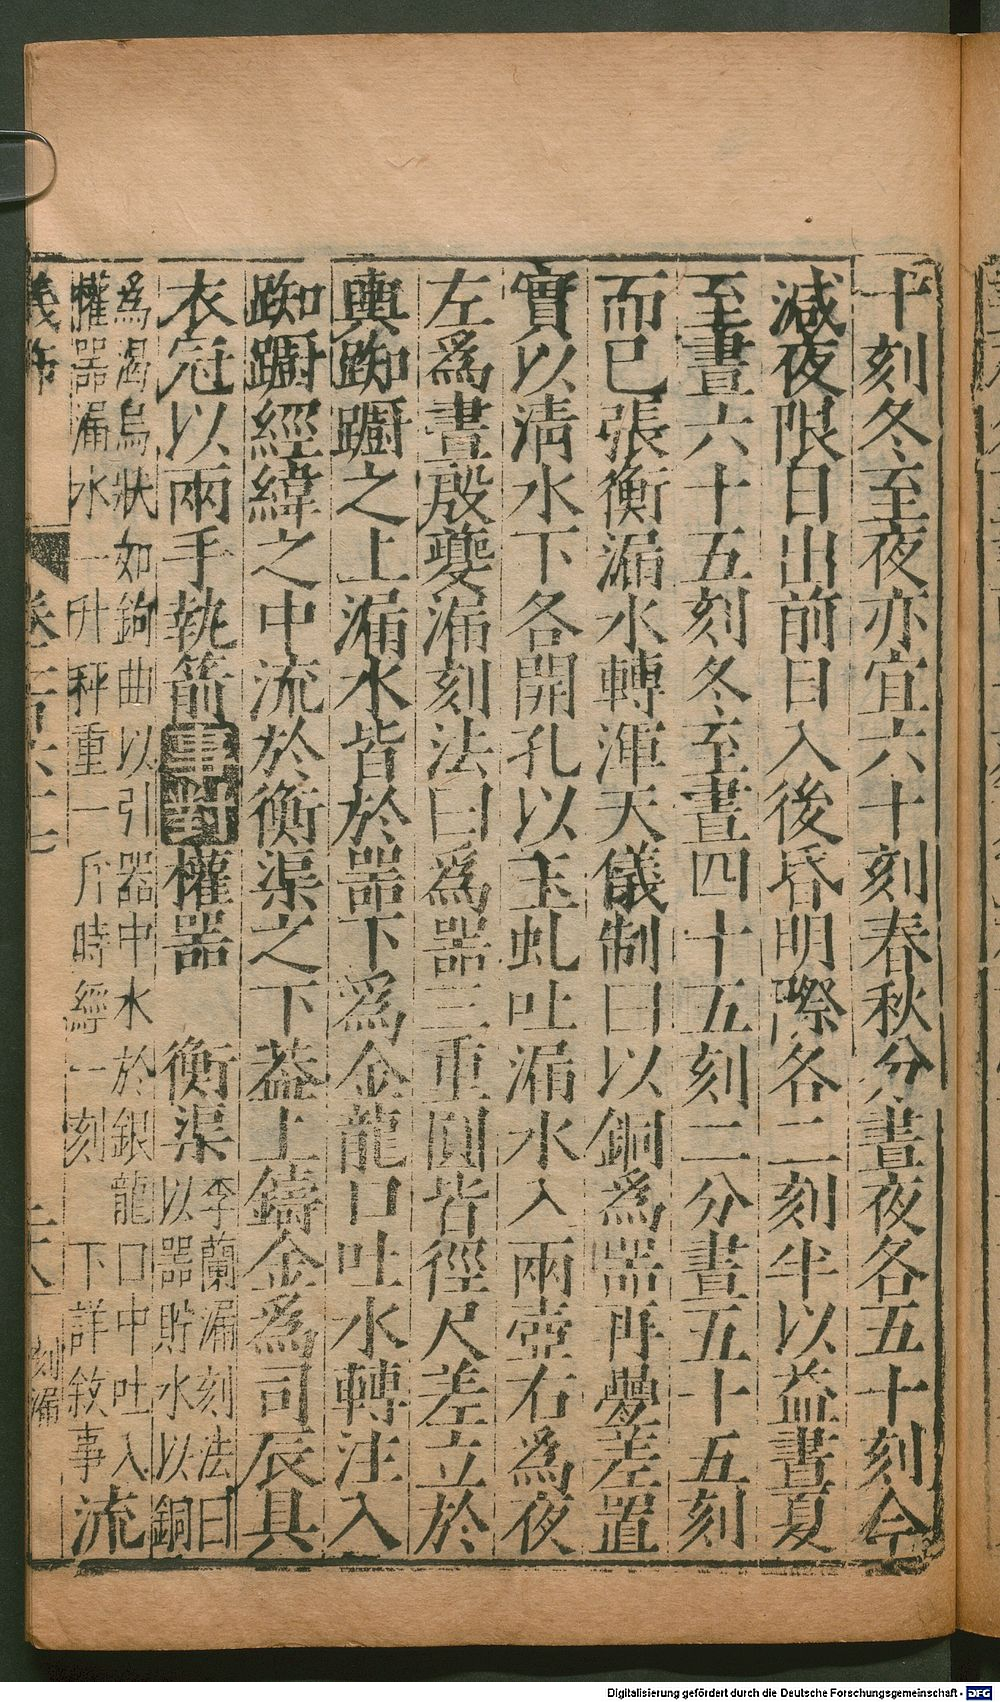 十刻冬至夜亦宜六十刻春秋分晝夜各五十刻今
減夜限日出前日入後昏明際各二刻半以益晝夏
至晝六十五刻冬至晝四十五刻二分晝五十五刻
而已張衡漏水轉渾天儀制曰以銅爲器再疊差置
實以清水下各開孔以玉虬吐漏水入兩壺右爲夜
左爲晝殷夔漏刻法曰爲器三重圓皆徑尺差立於
輿踟躕之上漏水皆於器下爲金龍口吐水轉注入
踟躕經緯之中流於衡渠之下蓋上鑄金爲司辰具
衣冠以兩手執箭事對權器 衡渠李蘭漏刻法曰
以器貯水以銅
爲渴烏狀如鉤曲以引器中水於銀龍口中吐入
權器漏水一升秤重一斤時經一刻 下詳敘事流
卷二百六十七 二十八 刻漏
Digitalisierung gefördert durch die Deutsche Forschungsgemeinschaft - DFG